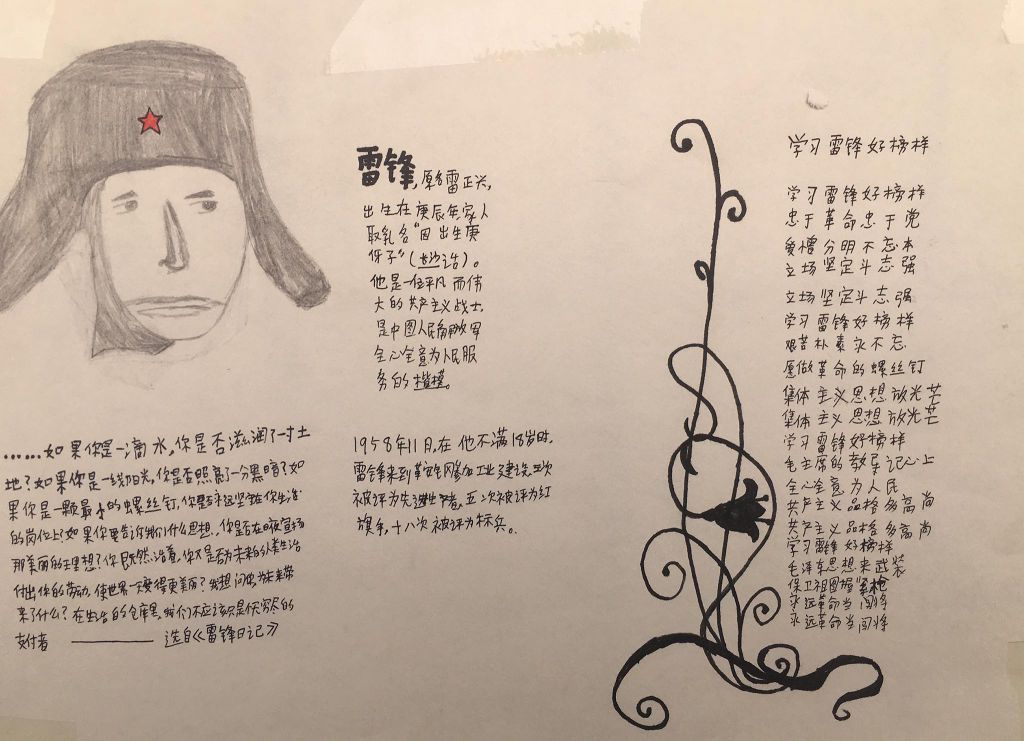 雷锋,原名雷正兴,
出生在庚辰年,家人
取乳名“因出生庚
伢子”(长沙话)。
他是一位平凡而伟
大的共产主义战士,
是中国人民解放军
全心全意为人民服
务的楷模。
……如果你是一滴水,你是否滋润了一寸土
地?如果你是一线阳光,你是否照亮了一分黑暗?如
果你是一颗最小的螺丝钉,你是否永远坚守在你生活
的岗位上?如果你要告诉我们什么思想,你是否在日夜宣扬
那美丽的理想?你既然活着,你又是否为未来的人类生活
付出你的劳动,使世界一天天变得更美丽?我想问你,为未来带
来了什么?在生活的仓库里,我们不应该只是个无穷尽的
支付者 ——— 选自《雷锋日记》
1958年11月,在他不满18岁时,
雷锋来到鞍钢参加工业建设,三次
被评为先进生产者,五次被评为红
旗手,十八次被评为标兵。
学习雷锋好榜样
学习雷锋好榜样
忠于革命忠于党
爱憎分明不忘本
立场坚定斗志强
立场坚定斗志强
学习雷锋好榜样
艰苦朴素永不忘
愿做革命的螺丝钉
集体主义思想放光芒
集体主义思想放光芒
学习雷锋好榜样
毛主席的教导记心上
全心全意为人民
共产主义品格多高尚
共产主义品格多高尚
学习雷锋好榜样
毛泽东思想来武装
保卫祖国握紧枪
永远革命当闯将
永远革命当闯将